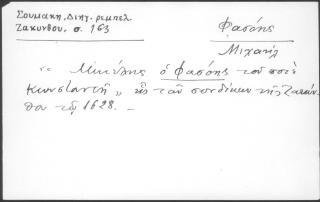 Σουμάκη, Διήγ. ρεμπελ.
Ζακύνθου, σ. 163
Φασόης
Μιχαήλ
"Μικέλης ὁ Φασόης τοῦ ποτὲ
Κωνσταντῆ", ἐκ τῶν συνδίκων τῆς Ζακύν-
θου τῷ 1628. —